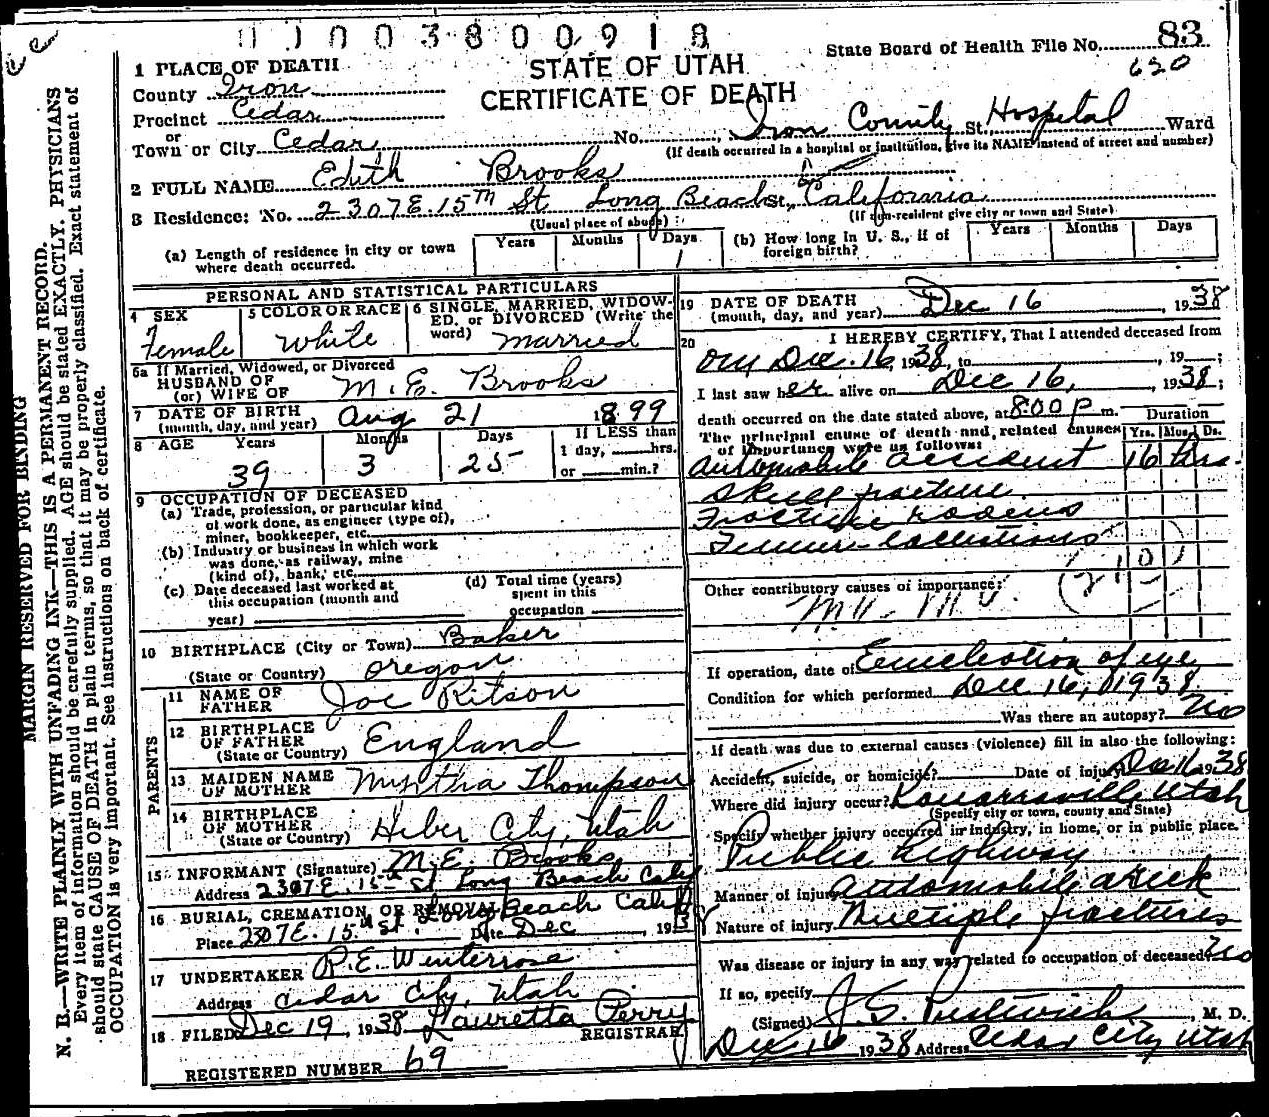 0 1 0 0 3 8 0 0 9 1 8
State Board of Health File No. 83
620
STATE OF UTAH
CERTIFICATE OF DEATH
1 PLACE OF DEATH
County Iron
Precinct Cedar
or
Town or City Cedar No. Iron County St., Hospital Ward
(If death occurred in a hospital or institution, give its NAME instead of street and number)
2 FULL NAME Edith Brooks
3 Residence: No. 2307 E. 15TH St Long Beach St., California
(Usual place of abode) (If non-resident give city or town and State)
(a) Length of residence in city or town where death occurred. Years Months Days 1
(b) How long in U. S., if of foreign birth? Years Months Days
PERSONAL AND STATISTICAL PARTICULARS
4 SEX Female
5 COLOR OR RACE White
6 SINGLE, MARRIED, WIDOWED, or DIVORCED (Write the word) Married
6a If Married, Widowed, or Divorced
HUSBAND OF
(or) WIFE OF M. E. Brooks
7 DATE OF BIRTH (month, day, and year) Aug 21 1899
8 AGE Years 39 Months 3 Days 25 If LESS than 1 day, hrs. or min.?
9 OCCUPATION OF DECEASED
(a) Trade, profession, or particular kind
of work done, as engineer (type of),
miner, bookkeeper, etc.
(b) Industry or business in which work
was done, as railway, mine
(kind of), bank, etc.
(c) Date deceased last worked at
this occupation (month and
year)
(d) Total time (years)
spent in this
occupation
10 BIRTHPLACE (City or Town) Baker
(State or Country) Oregon
PARENTS
11 NAME OF FATHER Joe Ritson
12 BIRTHPLACE OF FATHER (State or Country) England
13 MAIDEN NAME OF MOTHER Myrtha Thompson
14 BIRTHPLACE OF MOTHER (State or Country) Heber City, Utah
15 INFORMANT (Signature) M. E. Brooks
Address 2307 E. 15th St Long Beach Calif
16 BURIAL, CREMATION, OR REMOVAL Long Beach Calif
Place 2307 E. 15th St. Date Dec , 193
17 UNDERTAKER R. E. Winterrose
Address Cedar City, Utah
18 FILED Dec 19, 1938 Lauretta Perry REGISTRAR
REGISTERED NUMBER 69
19 DATE OF DEATH
(month, day, and year) Dec 16 1938
20 I HEREBY CERTIFY, That I attended deceased from
on Dec. 16, 1938, to , 19 ;
I last saw her alive on Dec 16, 1938;
death occurred on the date stated above, at 8:00 P m.
The principal cause of death and related causes
of importance were as follows:
Duration
Yrs. Mos. Ds.
Automobile accident 16 hrs.
Skull fracture
Fracture
Femur
210
Other contributory causes of importance:
If operation, date of Enucleation of eye
Condition for which performed Dec 16, 1938
Was there an autopsy? No
If death was due to external causes (violence) fill in also the following:
Accident, suicide, or homicide? Date of injury Dec 16 1938
Where did injury occur? Kanarraville Utah
(Specify city or town, county and State)
Specify whether injury occurred in industry, in home, or in public place.
Public Highway
Manner of injury Automobile wreck
Nature of injury Multiple fractures
Was disease or injury in any way related to occupation of deceased? No
If so, specify
(Signed) J. S. Prestwich, M. D.
Dec 16 1938 Address Cedar City Utah
MARGIN RESERVED FOR BINDING
N. B.—WRITE PLAINLY WITH UNFADING INK—THIS IS A PERMANENT RECORD.
Every item of information should be carefully supplied. AGE should be stated EXACTLY. PHYSICIANS
should state CAUSE OF DEATH in plain terms, so that it may be properly classified. Exact statement of
OCCUPATION is very important. See instructions on back of certificate.